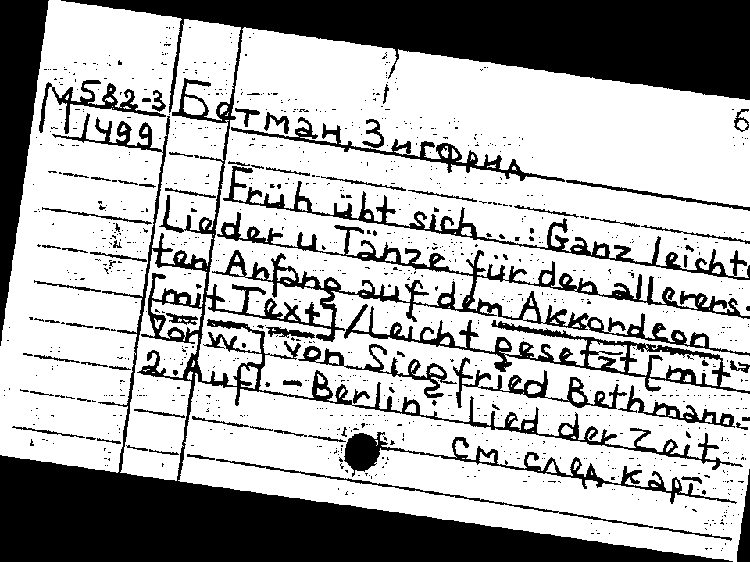 6
М 582-3
1499
Бетман, Зигфрид
Früh übt sich...: Ganz leichte
Lieder u. Tänze für den allerers-
ten Anfang auf dem Akkordeon
[mit Text] / Leicht gesetzt [mit
Vorw.] von Siegfried Bethmann.-
2. Aufl. - Berlin: Lied der Zeit,
см. след. карт.